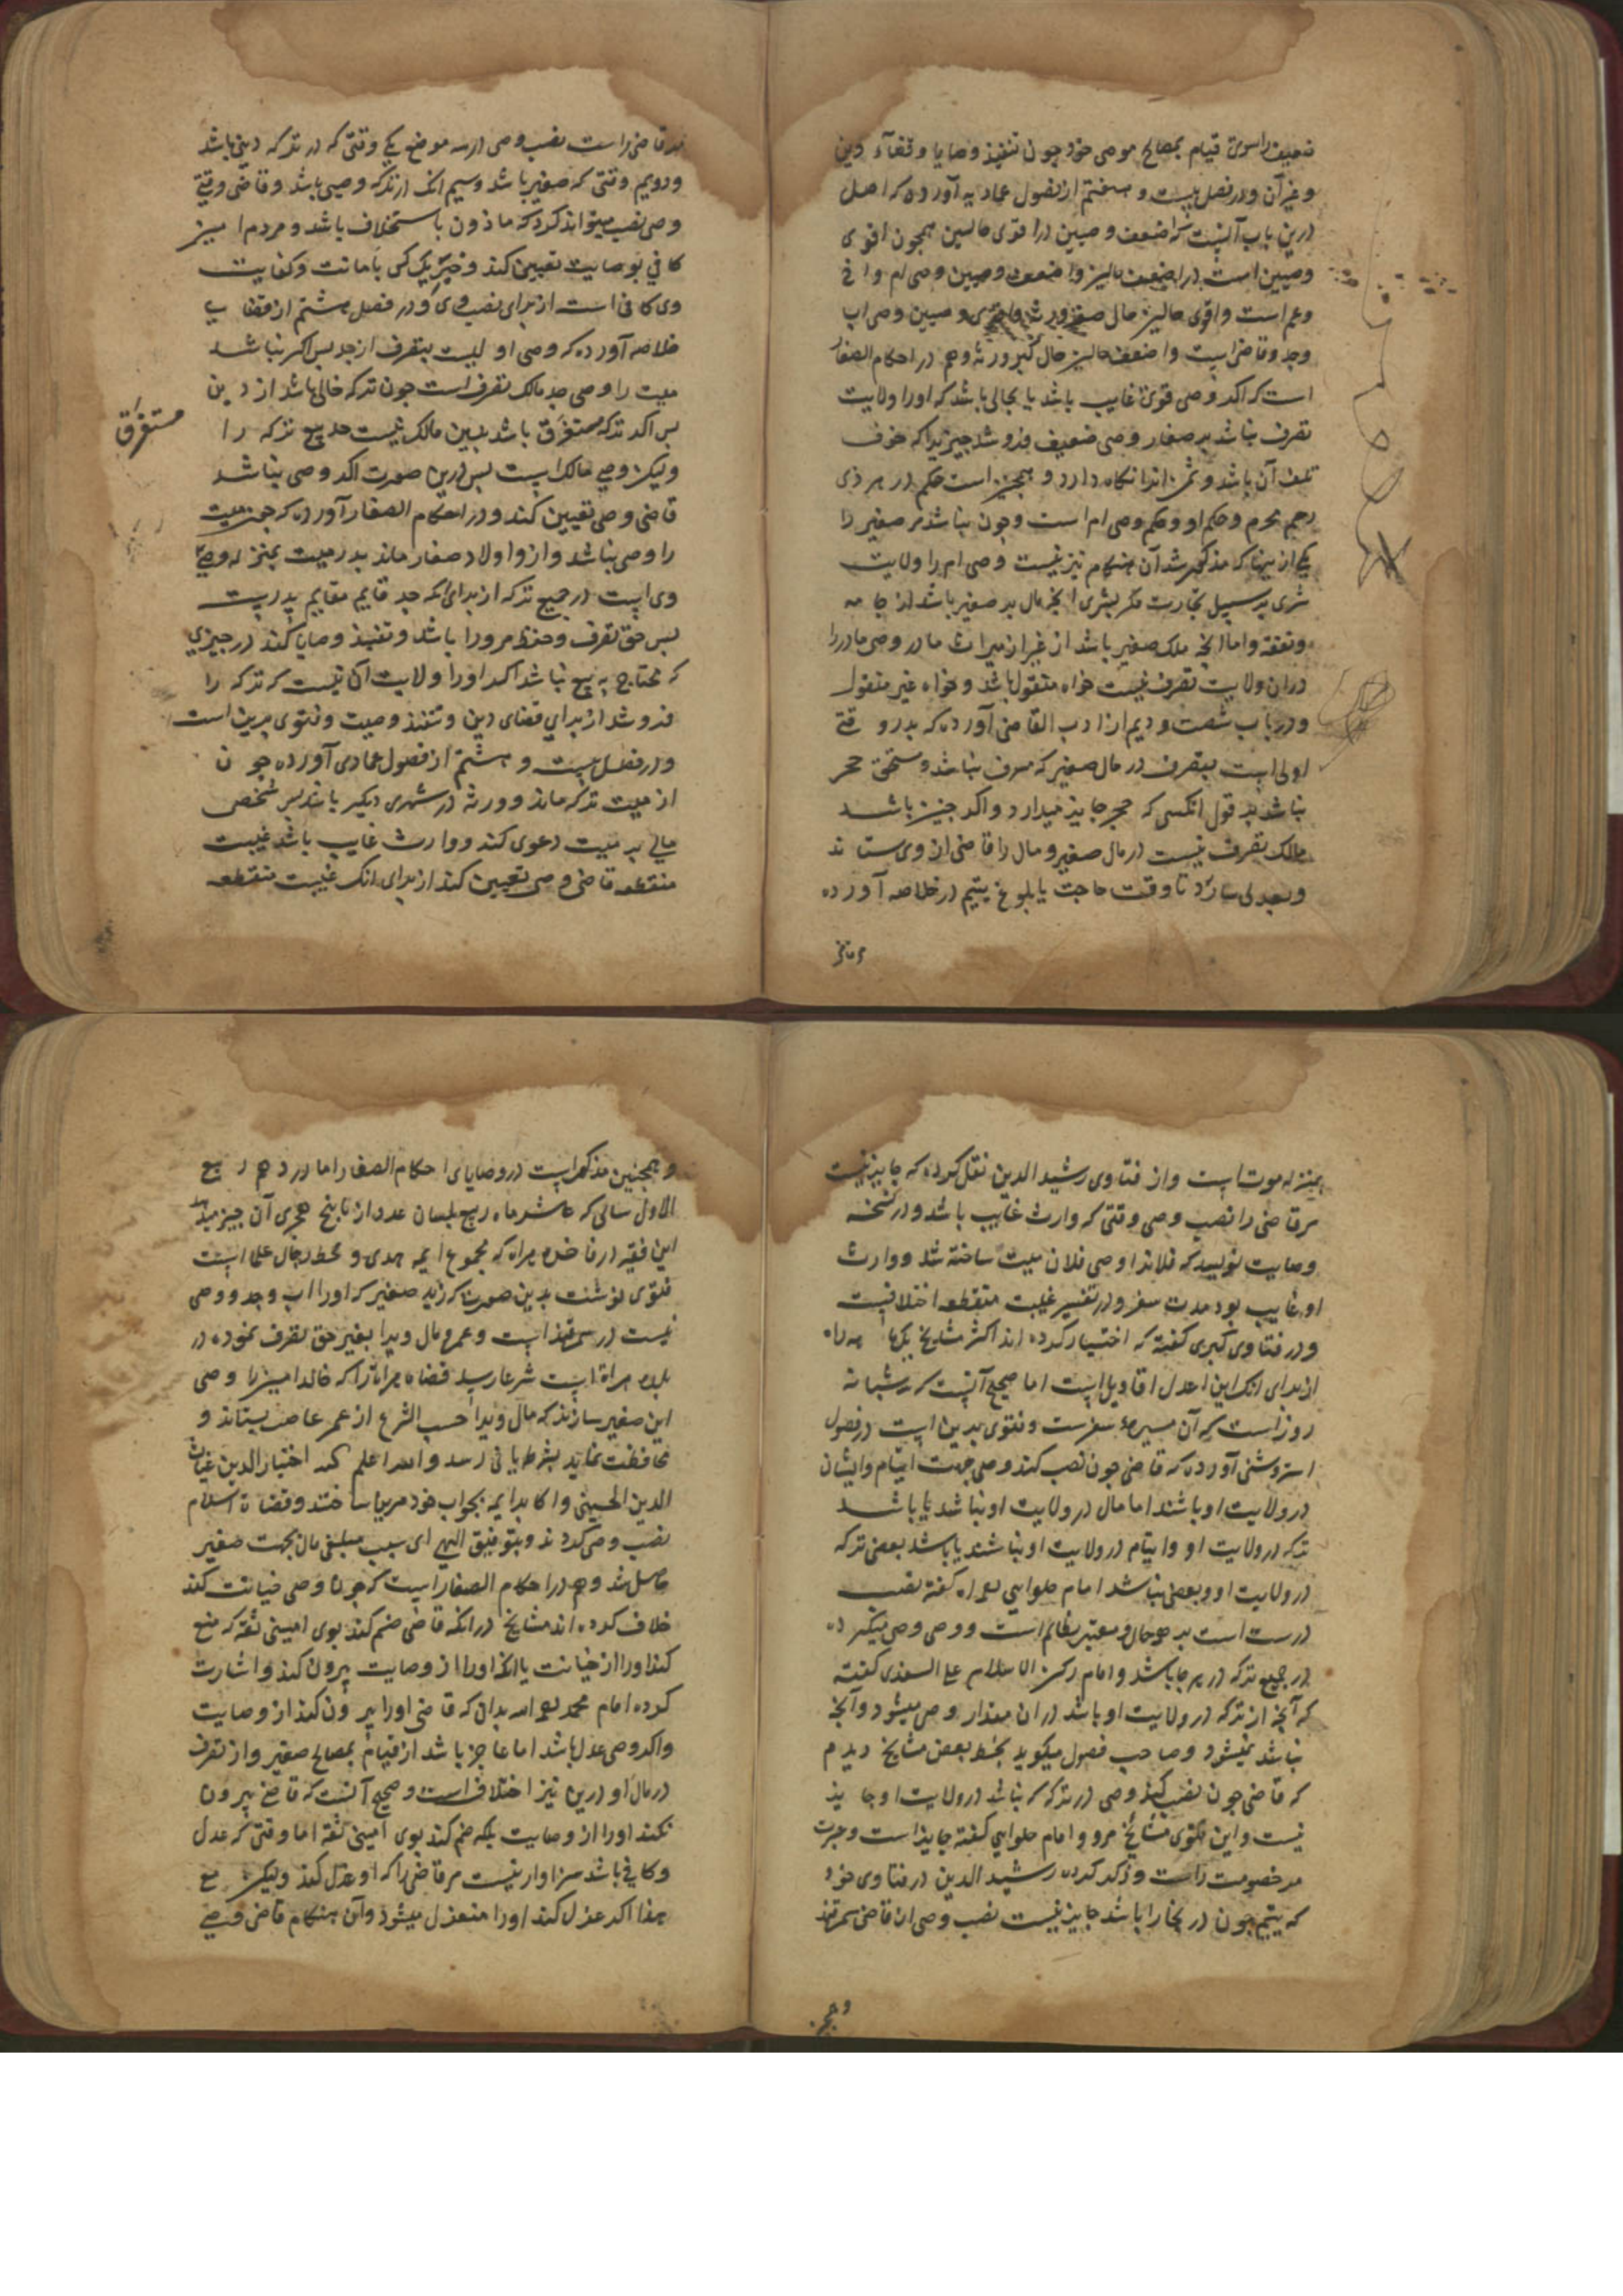 ضعیف را سوی قیام بمصالح موصی خود چون تنفیذ وصایا و قضاء دین
و غیر آن و در فصل بیست و هفتم از فصول عمادیه آورده که اصل
درین باب آنست که اضعف وصیین در اقوی حالین همچون اقوی
وصیین است در اضعف حالین و اضعف وصیین وصی ام و اخ
و عم است و اقوی حالین حال صغر ورثه و اقوی وصیین وصی اب
و جد و قاضی است و اضعف حالین حال کبر ورثه و هم در احکام الصغار
است که اگر وصی قوی غایب باشد یا بحالی باشد که او را ولایت
تصرف نباشد بر صغار وصی ضعیف فروشد چیزی را که خوف
تلف آن باشد و ثمن آنرا نگاه دارد و همچنین است حکم در هر ذی
رحم محرم و حکم او و حکم وصی ام است و چون نباشد مر صغیر را
یکی از اینها که مذکور شد آن هنگام نیز نیست وصی ام را ولایت
شری بر سبیل تجارت مگر بشری آنچه مال بر صغیر باشد از جامه
و نفقه و اما آنچه ملک صغیر باشد از غیر از میراث مادر وصی مادر را
در آن ولایت تصرف نیست خواه منقول باشد و خواه غیر منقول
و در باب شصت و دیم از ادب القاضی آورده که پدر وقتی
اولی است بتصرف در مال صغیر که مسرف نباشد و مستحق حجر
نباشد بر قول آنکسی که حجر جایز میدارد و اگر چنین باشد
مالک تصرف نیست در مال صغیر و مال را قاضی از وی ستاند
و بعدلی سپارد تا وقت حاجت یا بلوغ یتیم در خلاصه آورده
مر قاضی راست نصب وصی در سه موضع یکی وقتی که در ترکه دینی باشد
و دویم وقتی که صغیر باشد و سیم آنک از ترکه وصیتی باشد و قاضی وقتی
وصی نصب میتواند کرد که ماذون باستخلاف باشد و مردم امین
کافی بوصایت تعیین کند و خبر یک کس بامانت و کفایت
وی کافی است از برای نصب وی و در فصل هشتم از قضای
خلاصه آورده که وصی اولیست بتصرف از جد پس اگر نباشد
میت را وصی جد مالک تصرف است چون ترکه خالی باشد از دین
پس اگر ترکه مستغرق باشد بدین مالک نیست جد بیع ترکه را
مستغرق
ولیکن وصی مالک است پس درین صورت اگر وصی نباشد
قاضی وصی تعیین کند و در احکام الصغار آورده که چون میت
را وصی نباشد و از او اولاد صغار ماند پدر میت بمنزله وصی
وی است در جمیع ترکه از برای آنکه جد قایم مقام پدرست
پس حق تصرف و حفظ مر ورا باشد و تنفیذ وصایا کند در چیزی
که محتاج به بیع نباشد اما او را ولایت آن نیست که ترکه را
فروشد از برای قضای دین و تنفیذ وصیت و فتوی برین است
و در فصل بیست و هشتم از فصول عمادی آورده چون
از میت ترکه ماند و ورثه در شهری دیگر باشند پس شخصی
مالی بر میت دعوی کند و وارث غایب باشد غیبت
منقطعه قاضی وصی تعیین کند از برای آنک غیبت منقطعه
بمنزله موت است و از فتاوی رشید الدین نقل کرده که جایز نیست
مر قاضی را نصب وصی وقتی که وارث غایب باشد و در نسخه
وصایت نویسد که فلانرا وصی فلان میت ساخته شد و وارث
او غایب بود مدت سفر و در تفسیر غیبت منقطعه اختلافیست
و در فتاوی کبری گفته که اختیار کرده اند اکثر مشایخ یکماهه راه
از برای آنک این اعدل اقاویل است اما صحیح آنست که سه شبانه
روز است که آن مسیره سفرست و فتوی بدین است در فصول
استروشنی آورده که قاضی چون نصب کند وصی جهت ایتام و ایشان
در ولایت او باشند اما مال در ولایت او نباشد یا باشد
ترکه در ولایت او و ایتام در ولایت او نباشند یا باشد بعضی ترکه
در ولایت او و بعضی نباشد امام حلوایی رحمه الله گفته نصب
درست است بر هر حال و معتبر تظالم است و وصی وصی میگردد
در جمیع ترکه در هر جا باشد و امام رکن الاسلام علی السغدی گفته
که آنچه از ترکه در ولایت او باشد در آن مقدار وصی میشود و آنچه
نباشد نمیشود و صاحب فصول میگوید بخط بعض مشایخ دیدم
که قاضی چون نصب کند وصی در ترکه که نباشد در ولایت او جایز
نیست و این فتوی مشایخ مرو و امام حلوایی گفته جایز است و عبرت
مر خصومت راست و ذکر کرده رشید الدین در فتاوی خود
که یتیم چون در بخارا باشد جایز نیست نصب وصی از قاضی سمرقند
و همچنین مذکور است در وصایای احکام الصغار اما در دهم ربیع
الاول سالی که عاشر ماه ربیع بلسان عدد از تاریخ هجری آن خبر میدهد
این فقیه در فاخره هراه که مجموع ایمه هدی و محط رجال علما است
فتوی نوشت بدین صورت که زید صغیر که او را اب و جد و وصی
نیست در سمرقند است و عمرو مال ویرا بغیر حق تصرف نموده در
بلده هراة است شرعا رسد قضاة هراة را که خالد امین را وصی
این صغیر سازند که مال ویرا حسب الشرع از عمر غاصب بستاند و
محافظت نماید بشرط یا نی رسد والله اعلم کتبه اختیار الدین بن غیاث
الدین الحسینی و اکابر ایمه بجواب خود مزین ساختند و قضاة اسلام
نصب وصی کردند و بتوفیق الهی ای سبب مبلغی مال بجهت صغیر
حاصل شد و هم در احکام الصغار است که چون وصی خیانت کند
خلاف کرده اند مشایخ در آنکه قاضی ضم کند بوی امینی ثقه که منع
کند او را از خیانت یا آنکه او را از وصایت بیرون کند و اشارت
کرده امام محمد رحمه الله بدان که قاضی او را بیرون کند از وصایت
و اگر وصی عدل باشد اما عاجز باشد از قیام بمصالح صغیر و از تصرف
در مال او درین نیز اختلاف است و صحیح آنست که قاضی بیرون
نکند او را از وصایت بلکه ضم کند بوی امینی ثقه اما وقتی که عدل
و کافی باشد سزاوار نیست مر قاضی را که او عزل کند ولیکن مع
هذا اگر عزل کند او را منعزل میشود و آن هنگام قاضی وصی